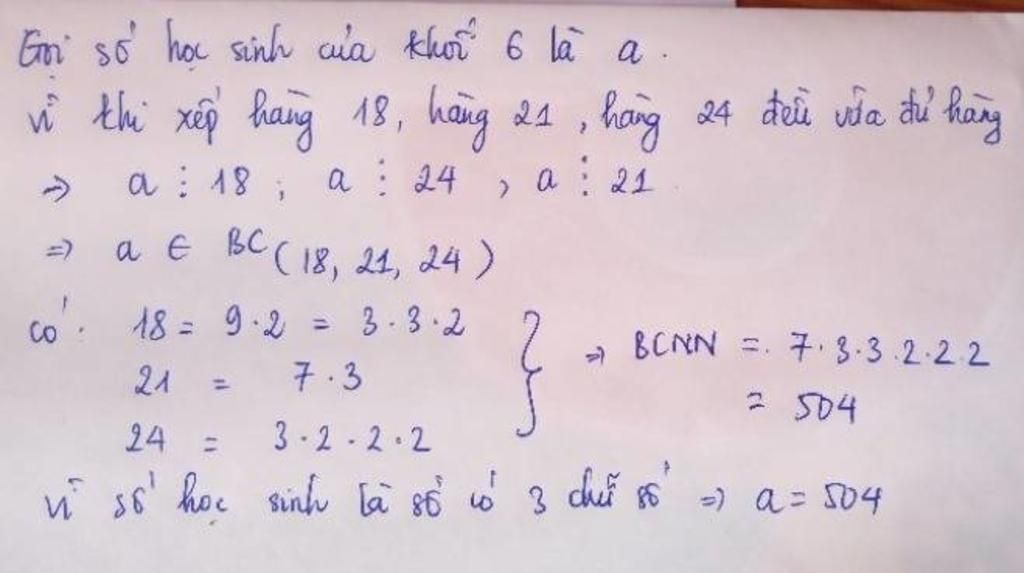 Gọi số học sinh của khối 6 là a.
vì khi xếp hàng 18, hàng 21, hàng 24 đều vừa đủ hàng
=> a ⋮ 18 ; a ⋮ 24 , a ⋮ 21
=> a ∈ BC (18, 21, 24)
có: 18 = 9·2 = 3·3·2
21 = 7·3
24 = 3·2·2·2
=> BCNN = 7·3·3·2·2·2
= 504
vì số học sinh là số có 3 chữ số => a = 504